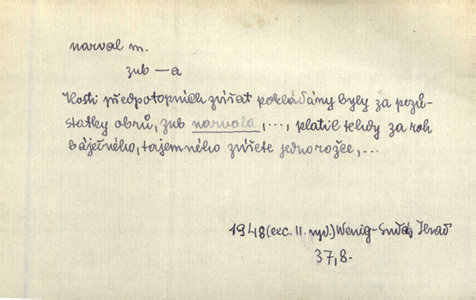 narval m.
zub —a
Kosti předpotopních zvířat pokládány byly za pozů-
statky obrů, zub narvala, ..., platil tehdy za roh
báječného, tajemného zvířete jednorožce, ...
1948 (exc. II. vyd.) Wenig-
37, 8.